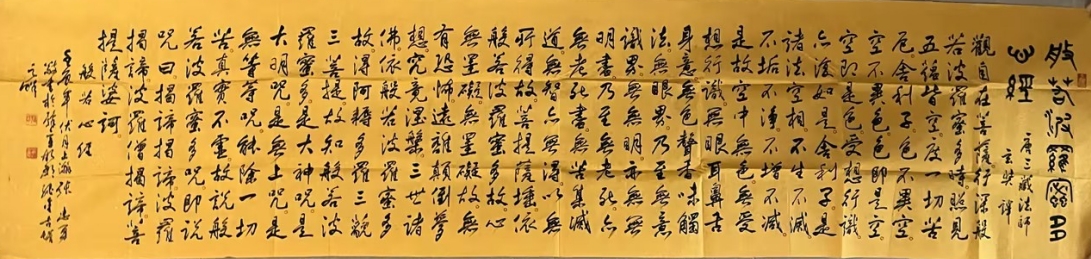 般若波羅蜜多
心經
唐三藏法師
玄奘譯
觀自在菩薩行深般
若波羅蜜多時照見
五蘊皆空度一切苦
厄舍利子色不異空
空不異色色即是空
空即是色受想行識
亦復如是舍利子是
諸法空相不生不滅
不垢不淨不增不減
是故空中無色無受
想行識無眼耳鼻舌
身意無色聲香味觸
法無眼界乃至無意
識界無無明亦無無
明盡乃至無老死亦
無老死盡無苦集滅
道無智亦無得以無
所得故菩提薩埵依
般若波羅蜜多故心
無罣礙無罣礙故無
有恐怖遠離顛倒夢
想究竟涅槃三世諸
佛依般若波羅蜜多
故得阿耨多羅三藐
三菩提故知般若波
羅蜜多是大神呪是
大明呪是無上呪是
無等等呪能除一切
苦真實不虛故說般
若波羅蜜多呪即說
呪曰揭諦揭諦波羅
揭諦波羅僧揭諦菩
提薩婆訶
般若心經
年伏月上澣張